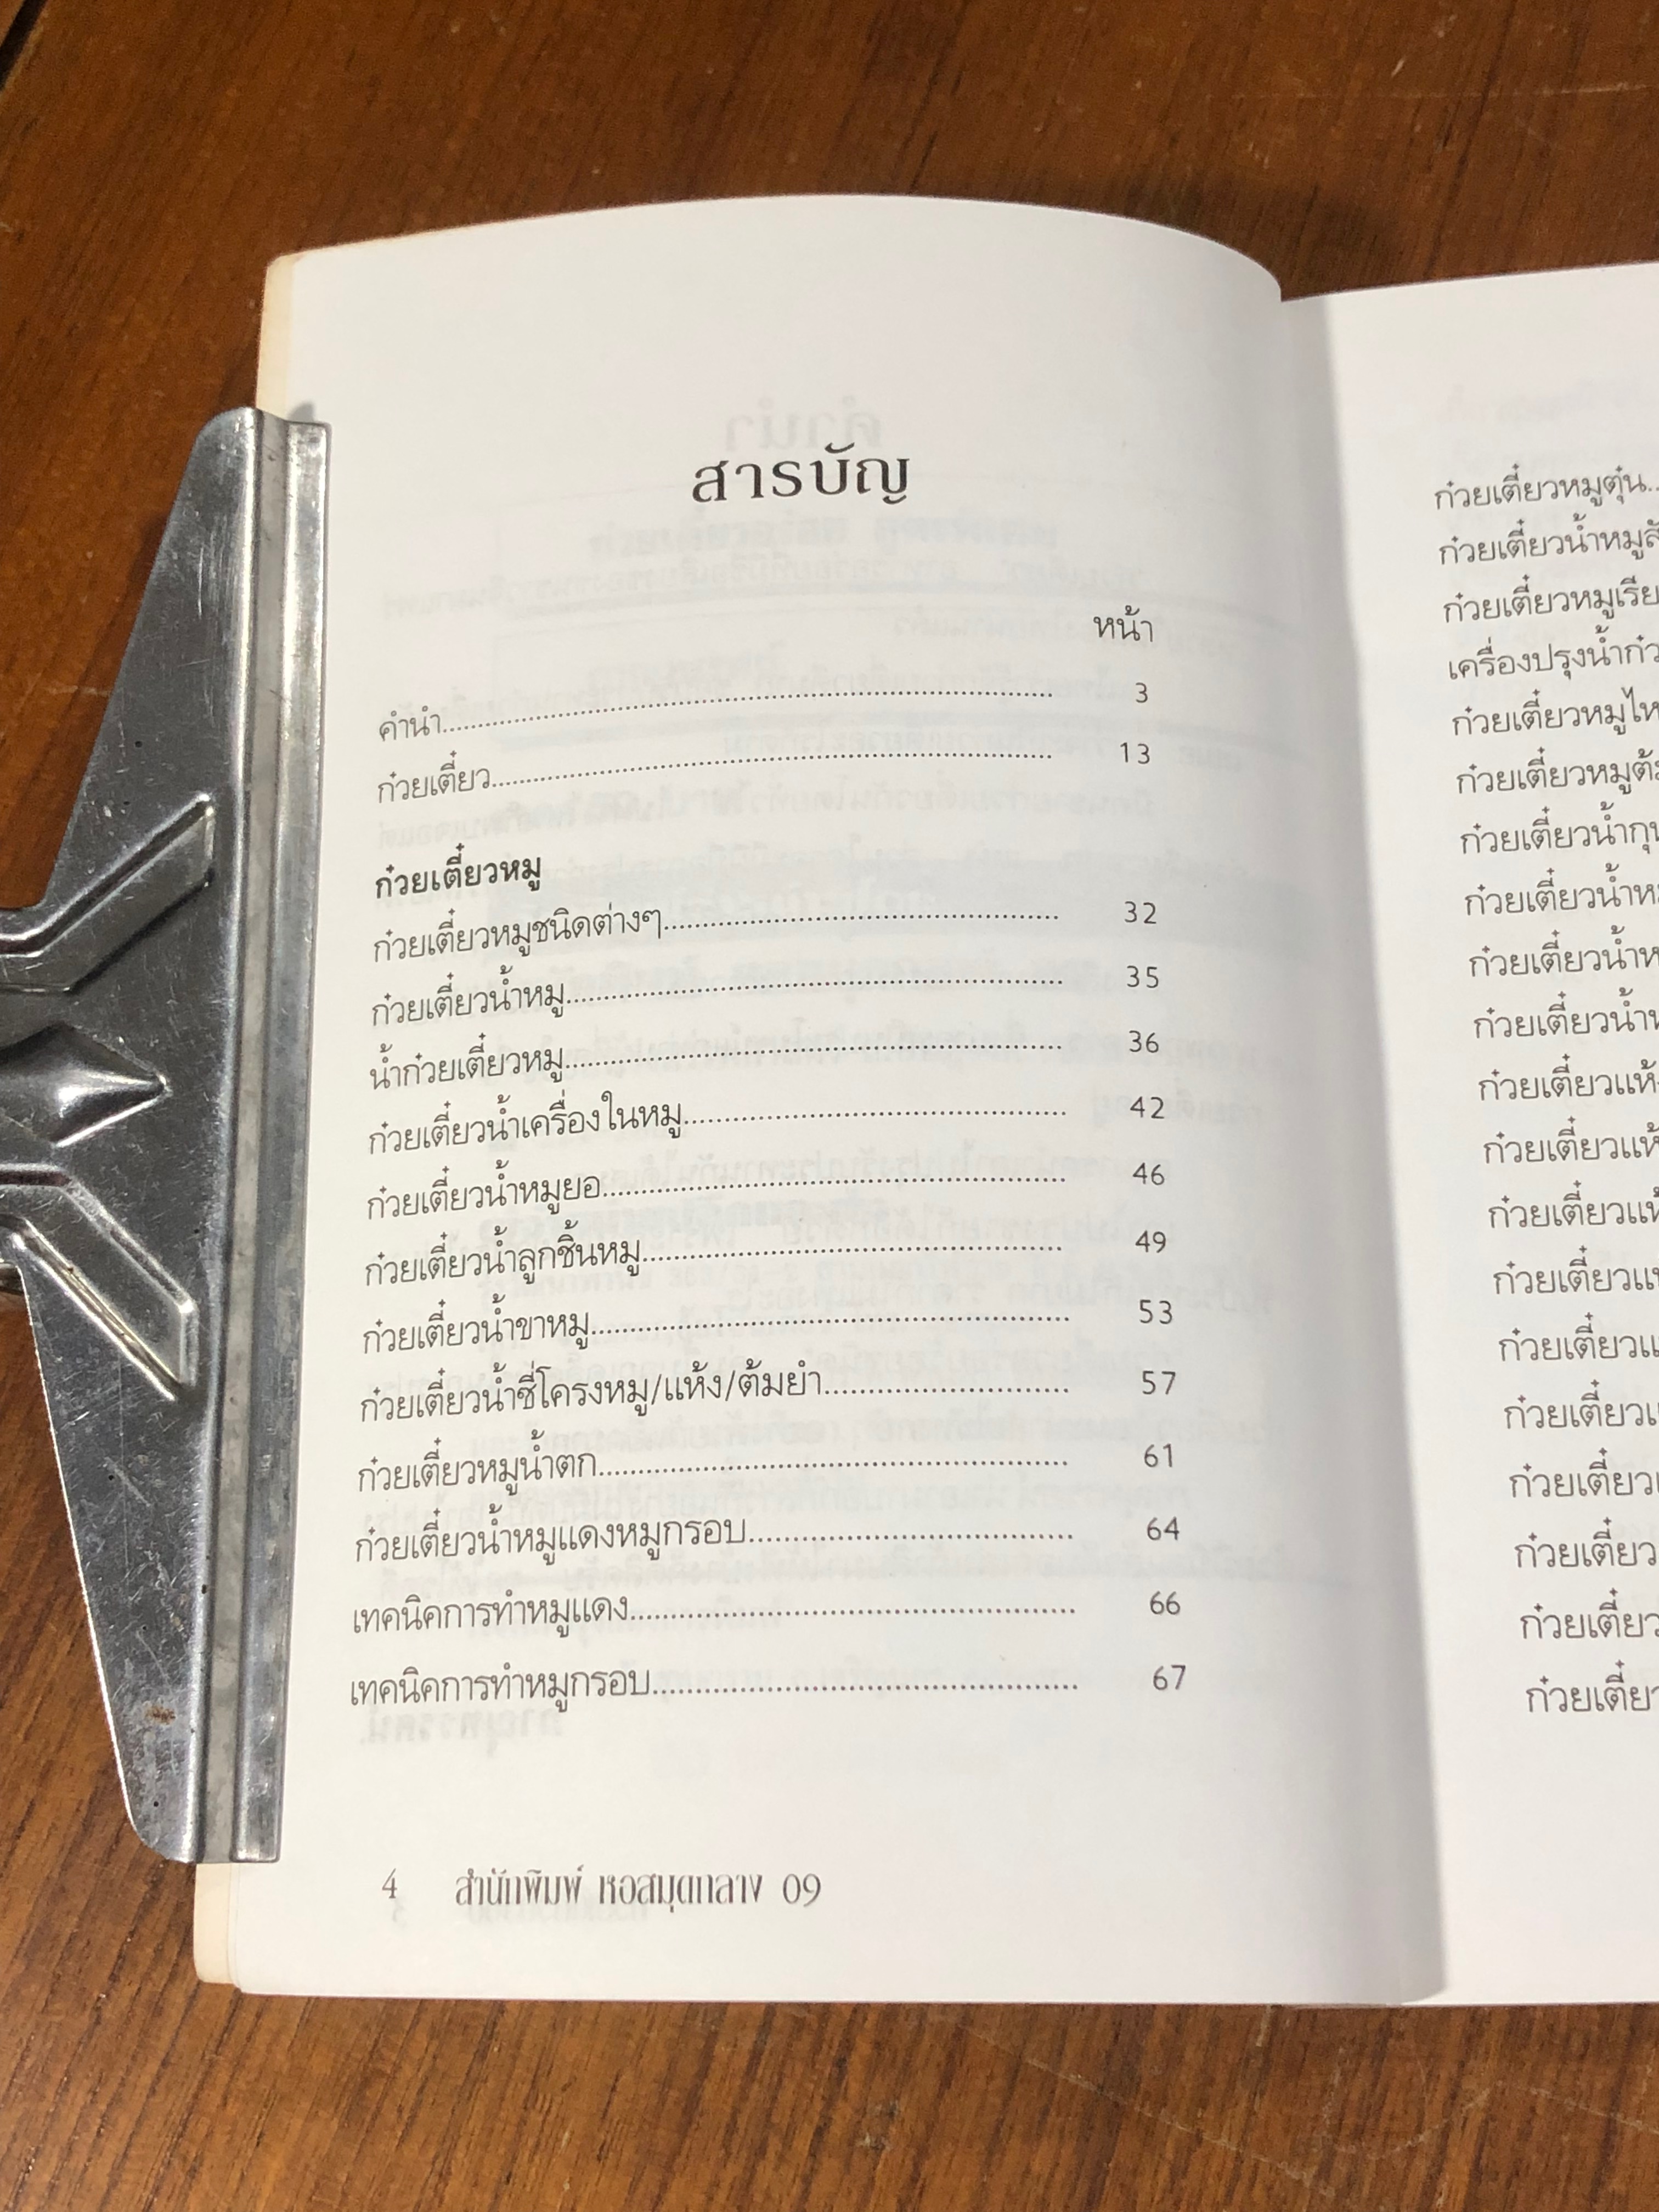 สารบัญ
หน้า
คำนำ........................................ 3
ก๋วยเตี๋ยว........................................ 13
ก๋วยเตี๋ยวหมู
ก๋วยเตี๋ยวหมูชนิดต่างๆ........................................ 32
ก๋วยเตี๋ยวน้ำหมู........................................ 35
น้ำก๋วยเตี๋ยวหมู........................................ 36
ก๋วยเตี๋ยวน้ำเครื่องในหมู........................................ 42
ก๋วยเตี๋ยวน้ำหมูยอ........................................ 46
ก๋วยเตี๋ยวน้ำลูกชิ้นหมู........................................ 49
ก๋วยเตี๋ยวน้ำขาหมู........................................ 53
ก๋วยเตี๋ยวน้ำซี่โครงหมู/แห้ง/ต้มยำ........................................ 57
ก๋วยเตี๋ยวหมูน้ำตก........................................ 61
ก๋วยเตี๋ยวน้ำหมูแดงหมูกรอบ........................................ 64
เทคนิคการทำหมูแดง........................................ 66
เทคนิคการทำหมูกรอบ........................................ 67
4 สำนักพิมพ์ หอสมุดกลาง 09
ก๋วยเตี๋ยวหมูตุ๋น..
ก๋วยเตี๋ยวน้ำหมู
ก๋วยเตี๋ยวหมูเรีย
เครื่องปรุงน้ำก๋ว
ก๋วยเตี๋ยวหมูไห
ก๋วยเตี๋ยวหมูต้
ก๋วยเตี๋ยวน้ำกุ
ก๋วยเตี๋ยวน้ำห
ก๋วยเตี๋ยวน้ำห
ก๋วยเตี๋ยวน้ำ
ก๋วยเตี๋ยวแห้
ก๋วยเตี๋ยวแห้
ก๋วยเตี๋ยวแห้
ก๋วยเตี๋ยวแ
ก๋วยเตี๋ยวแ
ก๋วยเตี๋ยว
ก๋วยเตี๋ยว
ก๋วยเตี๋ยว
ก๋วยเตี๋ยว
ก๋วยเตี๋ยว